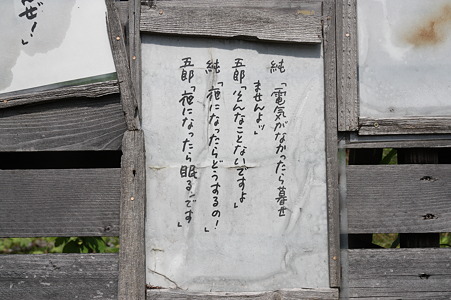 純「電気がなかったら暮せ
ませんよッ」
五郎「そんなことないですよ」
純「夜になったらどうするの!」
五郎「夜になったら眠るンです」
ぜ!」